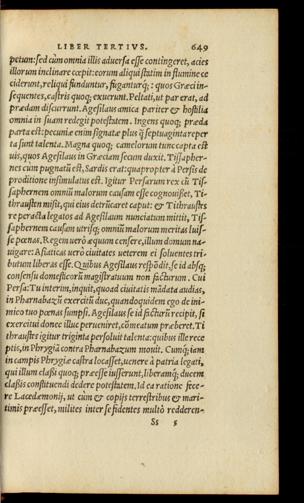 LIBER TERTIVS. 649
petum: sed cùm omnia illis aduersa esse contingeret, acies
illorum inclinare cœpit: eorum aliqui statim in flumine ce
ciderunt, reliqui funduntur, fuganturq;: quos Græci in-
sequentes, castris quoq; exuerunt. Peltati, ut par erat, ad
prædam discurrunt. Agesilaus amica pariter & hostilia
omnia in suam redegit potestatem. Ingens quoq; præda
parta est: pecuniæ enim signatæ plus q̃ septuaginta reper
ta sunt talenta. Magna quoq; camelorum tunc capta est
uis, quos Agesilaus in Græciam secum duxit. Tissapher-
nes cùm pugnatũ est, Sardis erat: quapropter à Persis de
proditione insimulatus est. Igitur Persarum rex cũ Tis-
saphernem omniũ malorum causam esse cognouisset, Ti-
thrausten misit, qui eius detrũcaret caput: & Tithraustes
re peracta legatos ad Agesilaum nunciatum mittit, Tis-
saphernem causam utrisq; omniũ malorum meritas luis-
se pœnas. Regem uerò æquum censere, illum domum na-
uigare: Asiaticas uerò ciuitates ueterem ei soluentes tri-
butum liberas esse. Quibus Agesilaus respõdit, se id absq;
consensu domesticorũ magistratuum non facturum. Cui
Persa: Tu interim, inquit, quoad ciuitatis mãdata audias,
in Pharnabazũ exercitũ duc, quandoquidem ego de ini-
mico tuo pœnas sumpsi. Agesilaus se id facturũ recipit, si
exercitui donec illuc perueniret, cõmeatum præberet. Ti
thraustes igitur triginta persoluit talenta: quibus ille rece
ptis, in Phrygiã contra Pharnabazum mouit. Cumq; iam
in campis Phrygiæ castra locasset, uenere à patria legati,
qui illum classi quoq; præesse iusserunt, liberamq; ducem
classis constituendi dedere potestatem. Id ea ratione fece-
re Lacedæmonij, ut cùm & copijs terrestribus & mari-
timis præesset, milites inter se fidentes multò redderen-
Ss 5